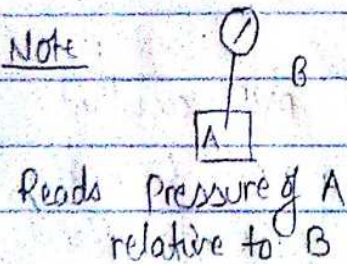 Note:
B
A
Reads Pressure of A
relative to B